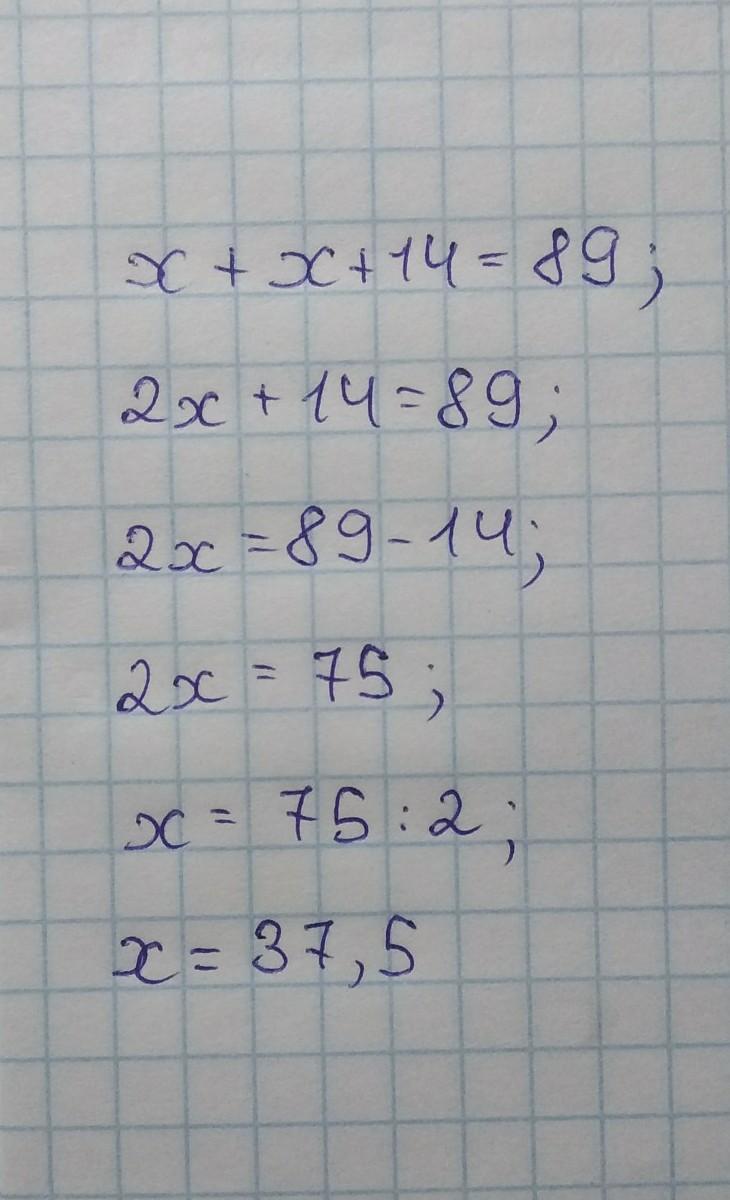 x + x + 14 = 89;
2x + 14 = 89;
2x = 89 - 14;
2x = 75;
x = 75 : 2;
x = 37,5